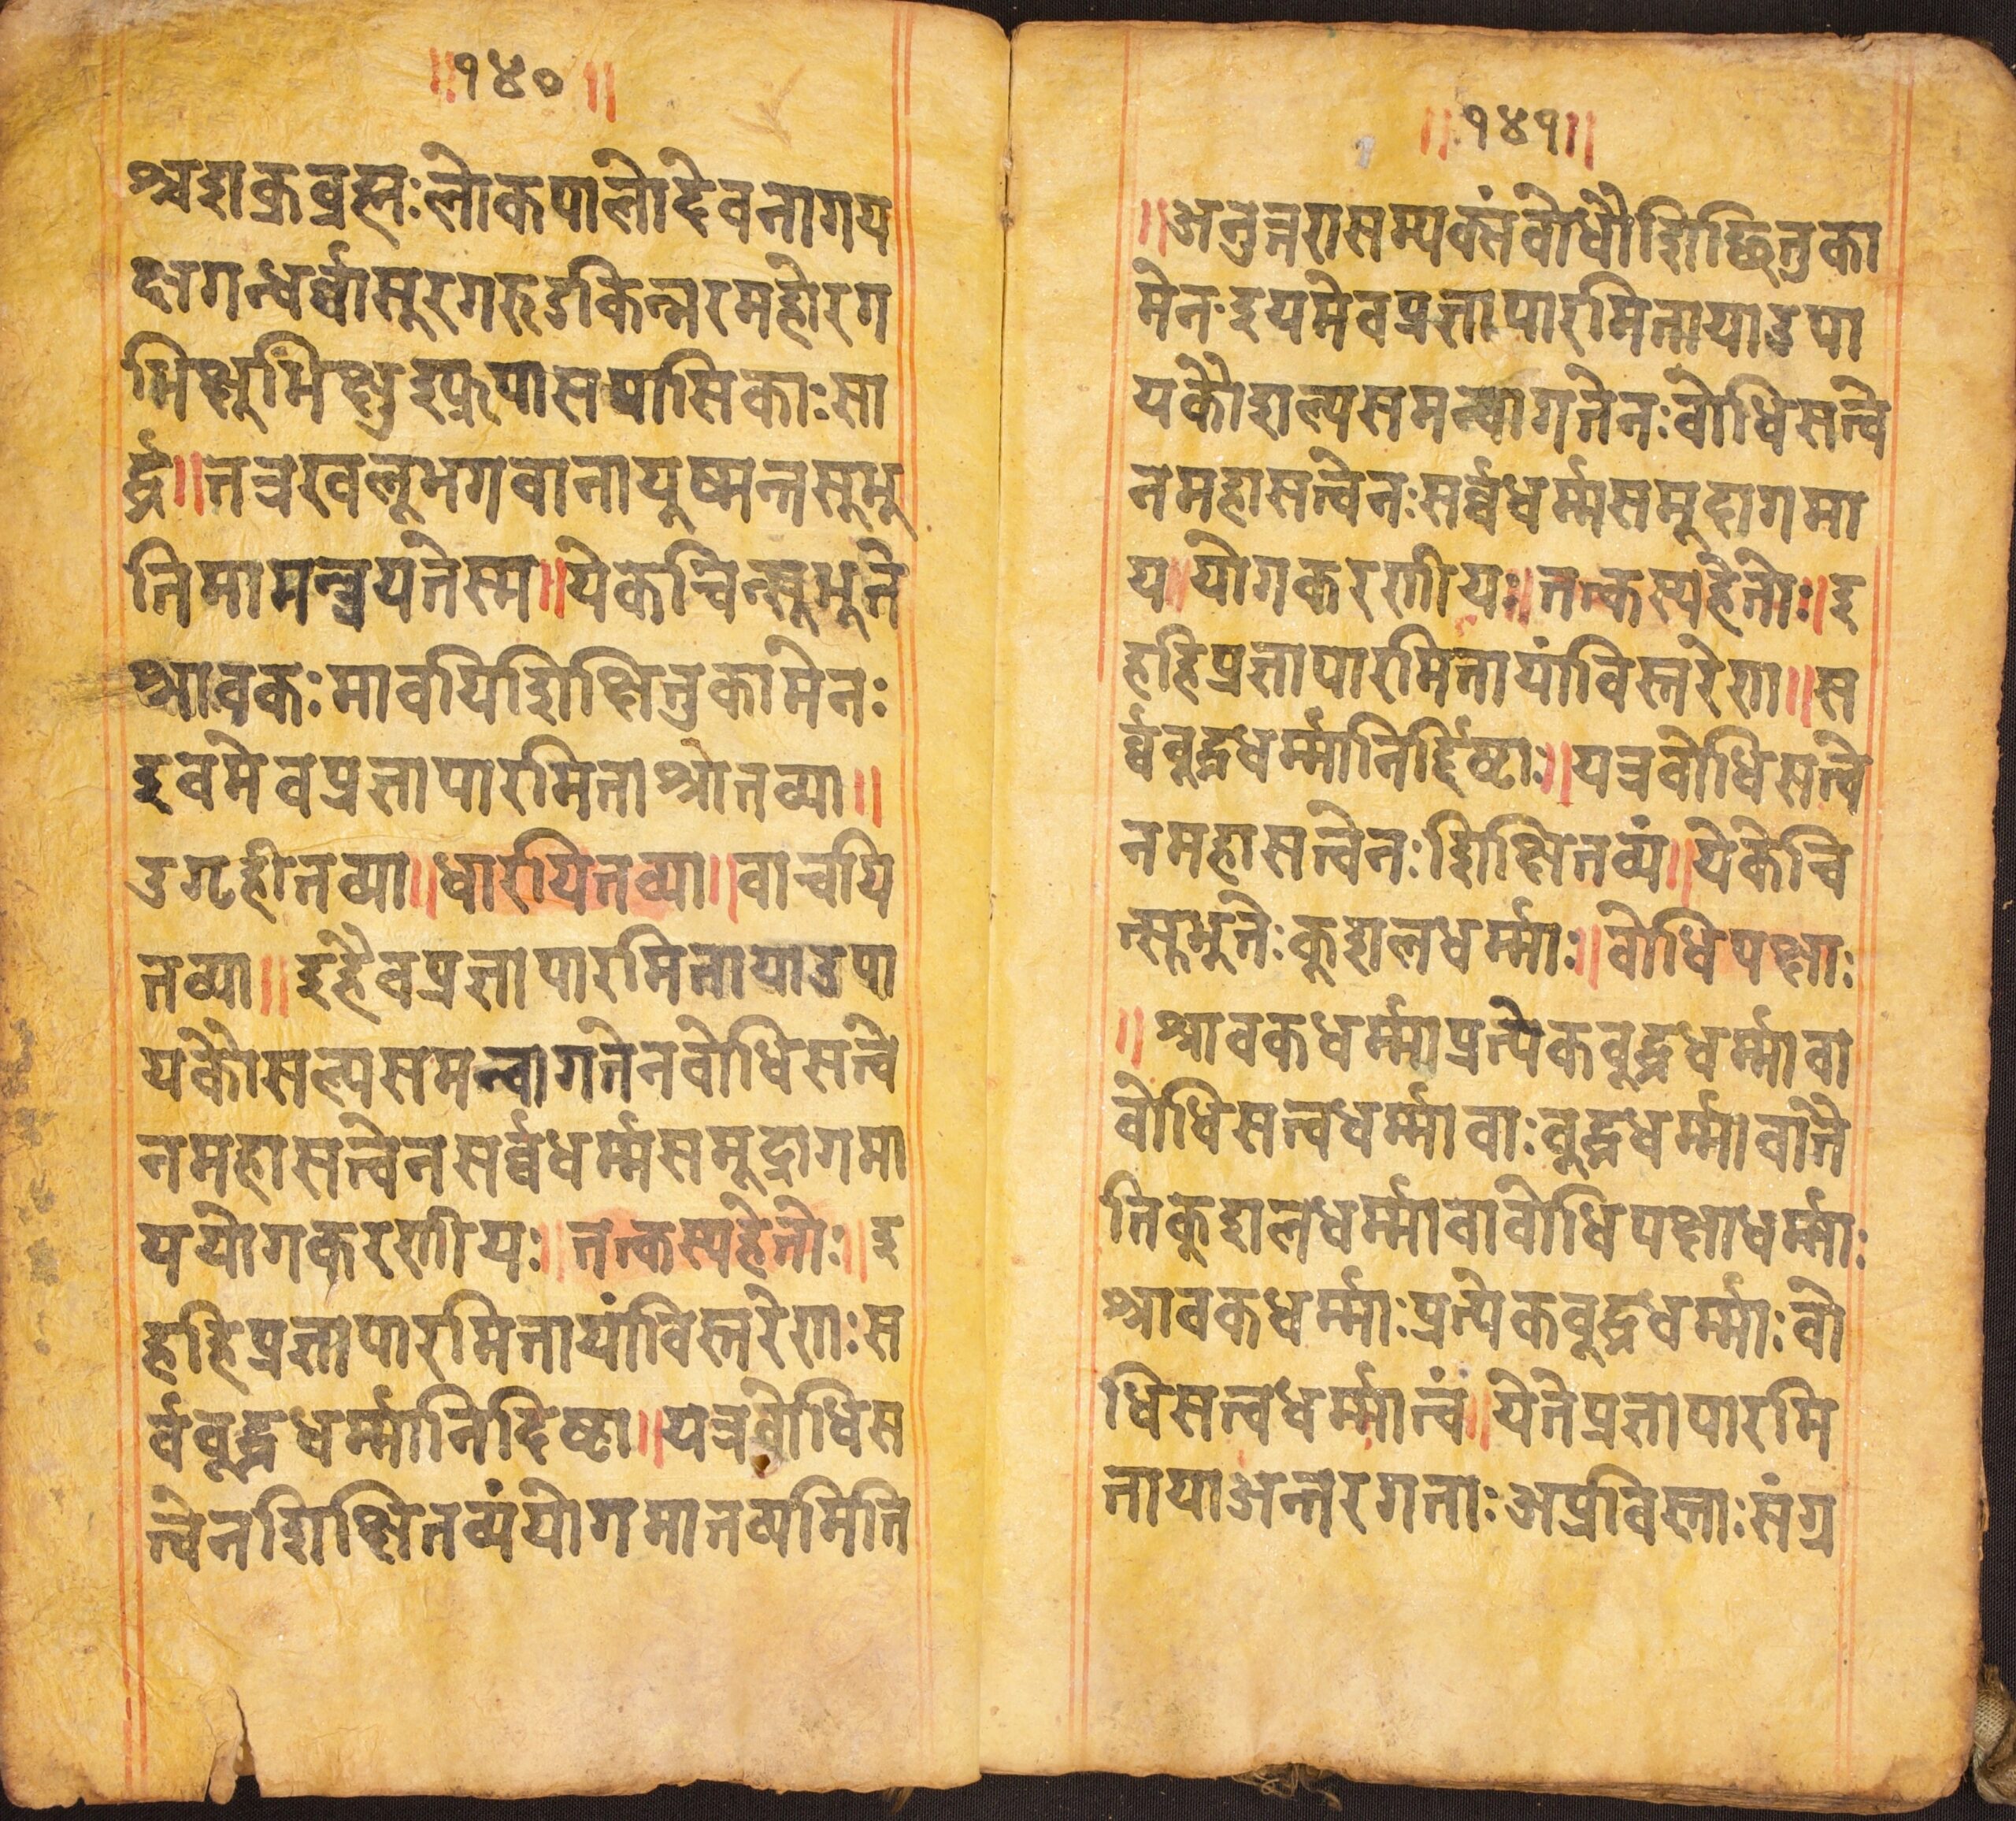 ॥१४०॥
श्चशक्रब्रह्मः लोकपालोदेवनागय
क्षगन्धर्व्वासुरगरुडकिन्नरमहोरग
भिक्षुभिक्षु पासिकाः सा
र्द्धं॥तत्रखलूभगवानायूष्मन्तसूभू
तिमामन्त्रयतेस्म॥येकेचित्सूभूते
श्रावकः मावयिशिक्षितुकामेनः
इवमेवप्रज्ञापारमिताश्रोतव्या॥
उगृहीतव्या॥धारयितव्या॥वाचयि
तव्या॥इहैवप्रज्ञापारमितायाउपा
यकौसल्यसमन्वागतेनवोधिसत्वे
नमहासत्वेनसर्व्वधर्म्मसमूदागमा
ययोगकरणीयः॥तत्कस्यहेतोः॥इ
हहिप्रज्ञापारमितायांविस्तरेणः स
र्ववूद्धधर्म्मानिदिष्टा॥यत्रवोधिस
त्वेनशिक्षितव्यंयोगमातव्यमिति
॥१४१॥
॥अनुत्तरासम्यक्संवोधौशिक्षितुका
मेनः इयमेवप्रज्ञापारमितायाउपा
यकौशल्यसमन्वागतेनः वोधिसत्वे
नमहासत्वेनः सर्व्वधर्म्मसमूदागमा
य॥योगकरणीयः॥तत्कस्यहेतोः॥इ
हहिप्रज्ञापारमितायांविस्तरेण॥स
र्व्ववुद्धधर्म्मानिर्द्दिष्टाः॥यत्रवोधिसत्वे
नमहासत्वेनः शिक्षितव्यं॥येकेचि
त्सूभूतेः कुशलधर्म्माः॥वोधिपक्षाः
॥श्रावकधर्म्माप्रत्येकवुद्धधर्म्मावा
वोधिसत्वधर्म्मावाः वुद्धधर्म्मावातै
तिकुशलधर्म्मावावोधिपक्षाधर्म्माः
श्रावकधर्म्माः प्रत्येकवूद्धधर्म्माः वो
धिसत्वधर्म्मात्वं॥येतेप्रज्ञापारमि
तायाअन्तरगताः अप्रविस्ताः संग्र